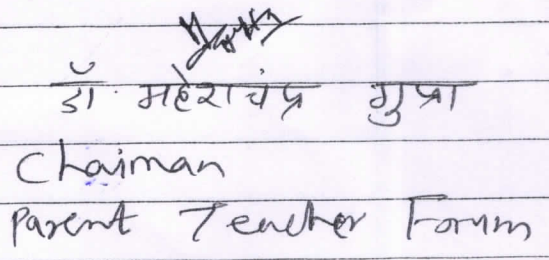 डॉ. महेशचंद्र गुप्ता
Chaiman
Parent Teacher Forum